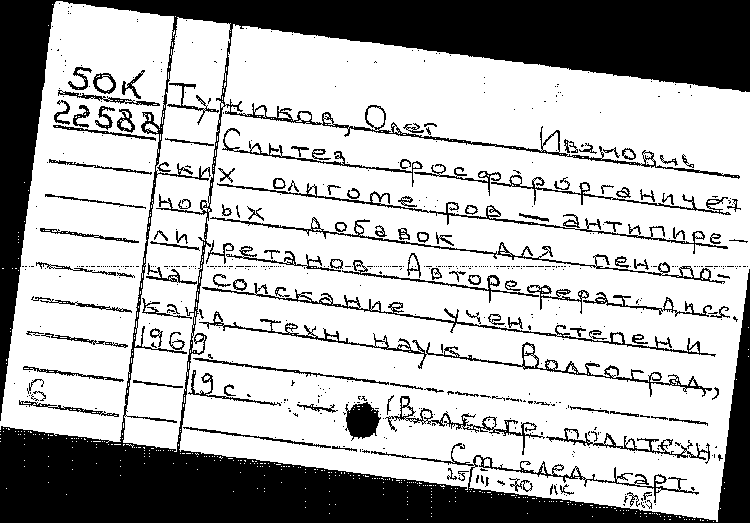 50К
22588
Тужиков, Олег Иванович
Синтез фосфорорганичес
ских олигомеров — антипире-
новых добавок для пенопо-
лиуретанов. Автореферат дисс.
на соискание учен. степени
канд. техн. наук. Волгоград,
1969.
19 с. — (Волгогр. политехн.
6
См. след. карт.
25/III-70 лк